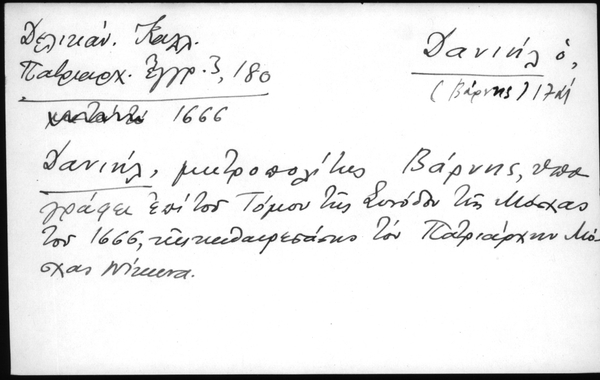 Δελικάν. Καλλ.
Πατριαρχ. Ἔγγρ. 3, 180
1666
Δανιήλ ὁ,
(Βάρνης)
Δανιήλ, μητροπολίτης Βάρνης, ὑπο
γράφει ἐπί τοῦ Τόμου τῆς Συνόδου τῆς Μόσχας
τοῦ 1666, τῆς καθαιρεσάσης τόν Πατριάρχην Μό-
σχας Νίκωνα.